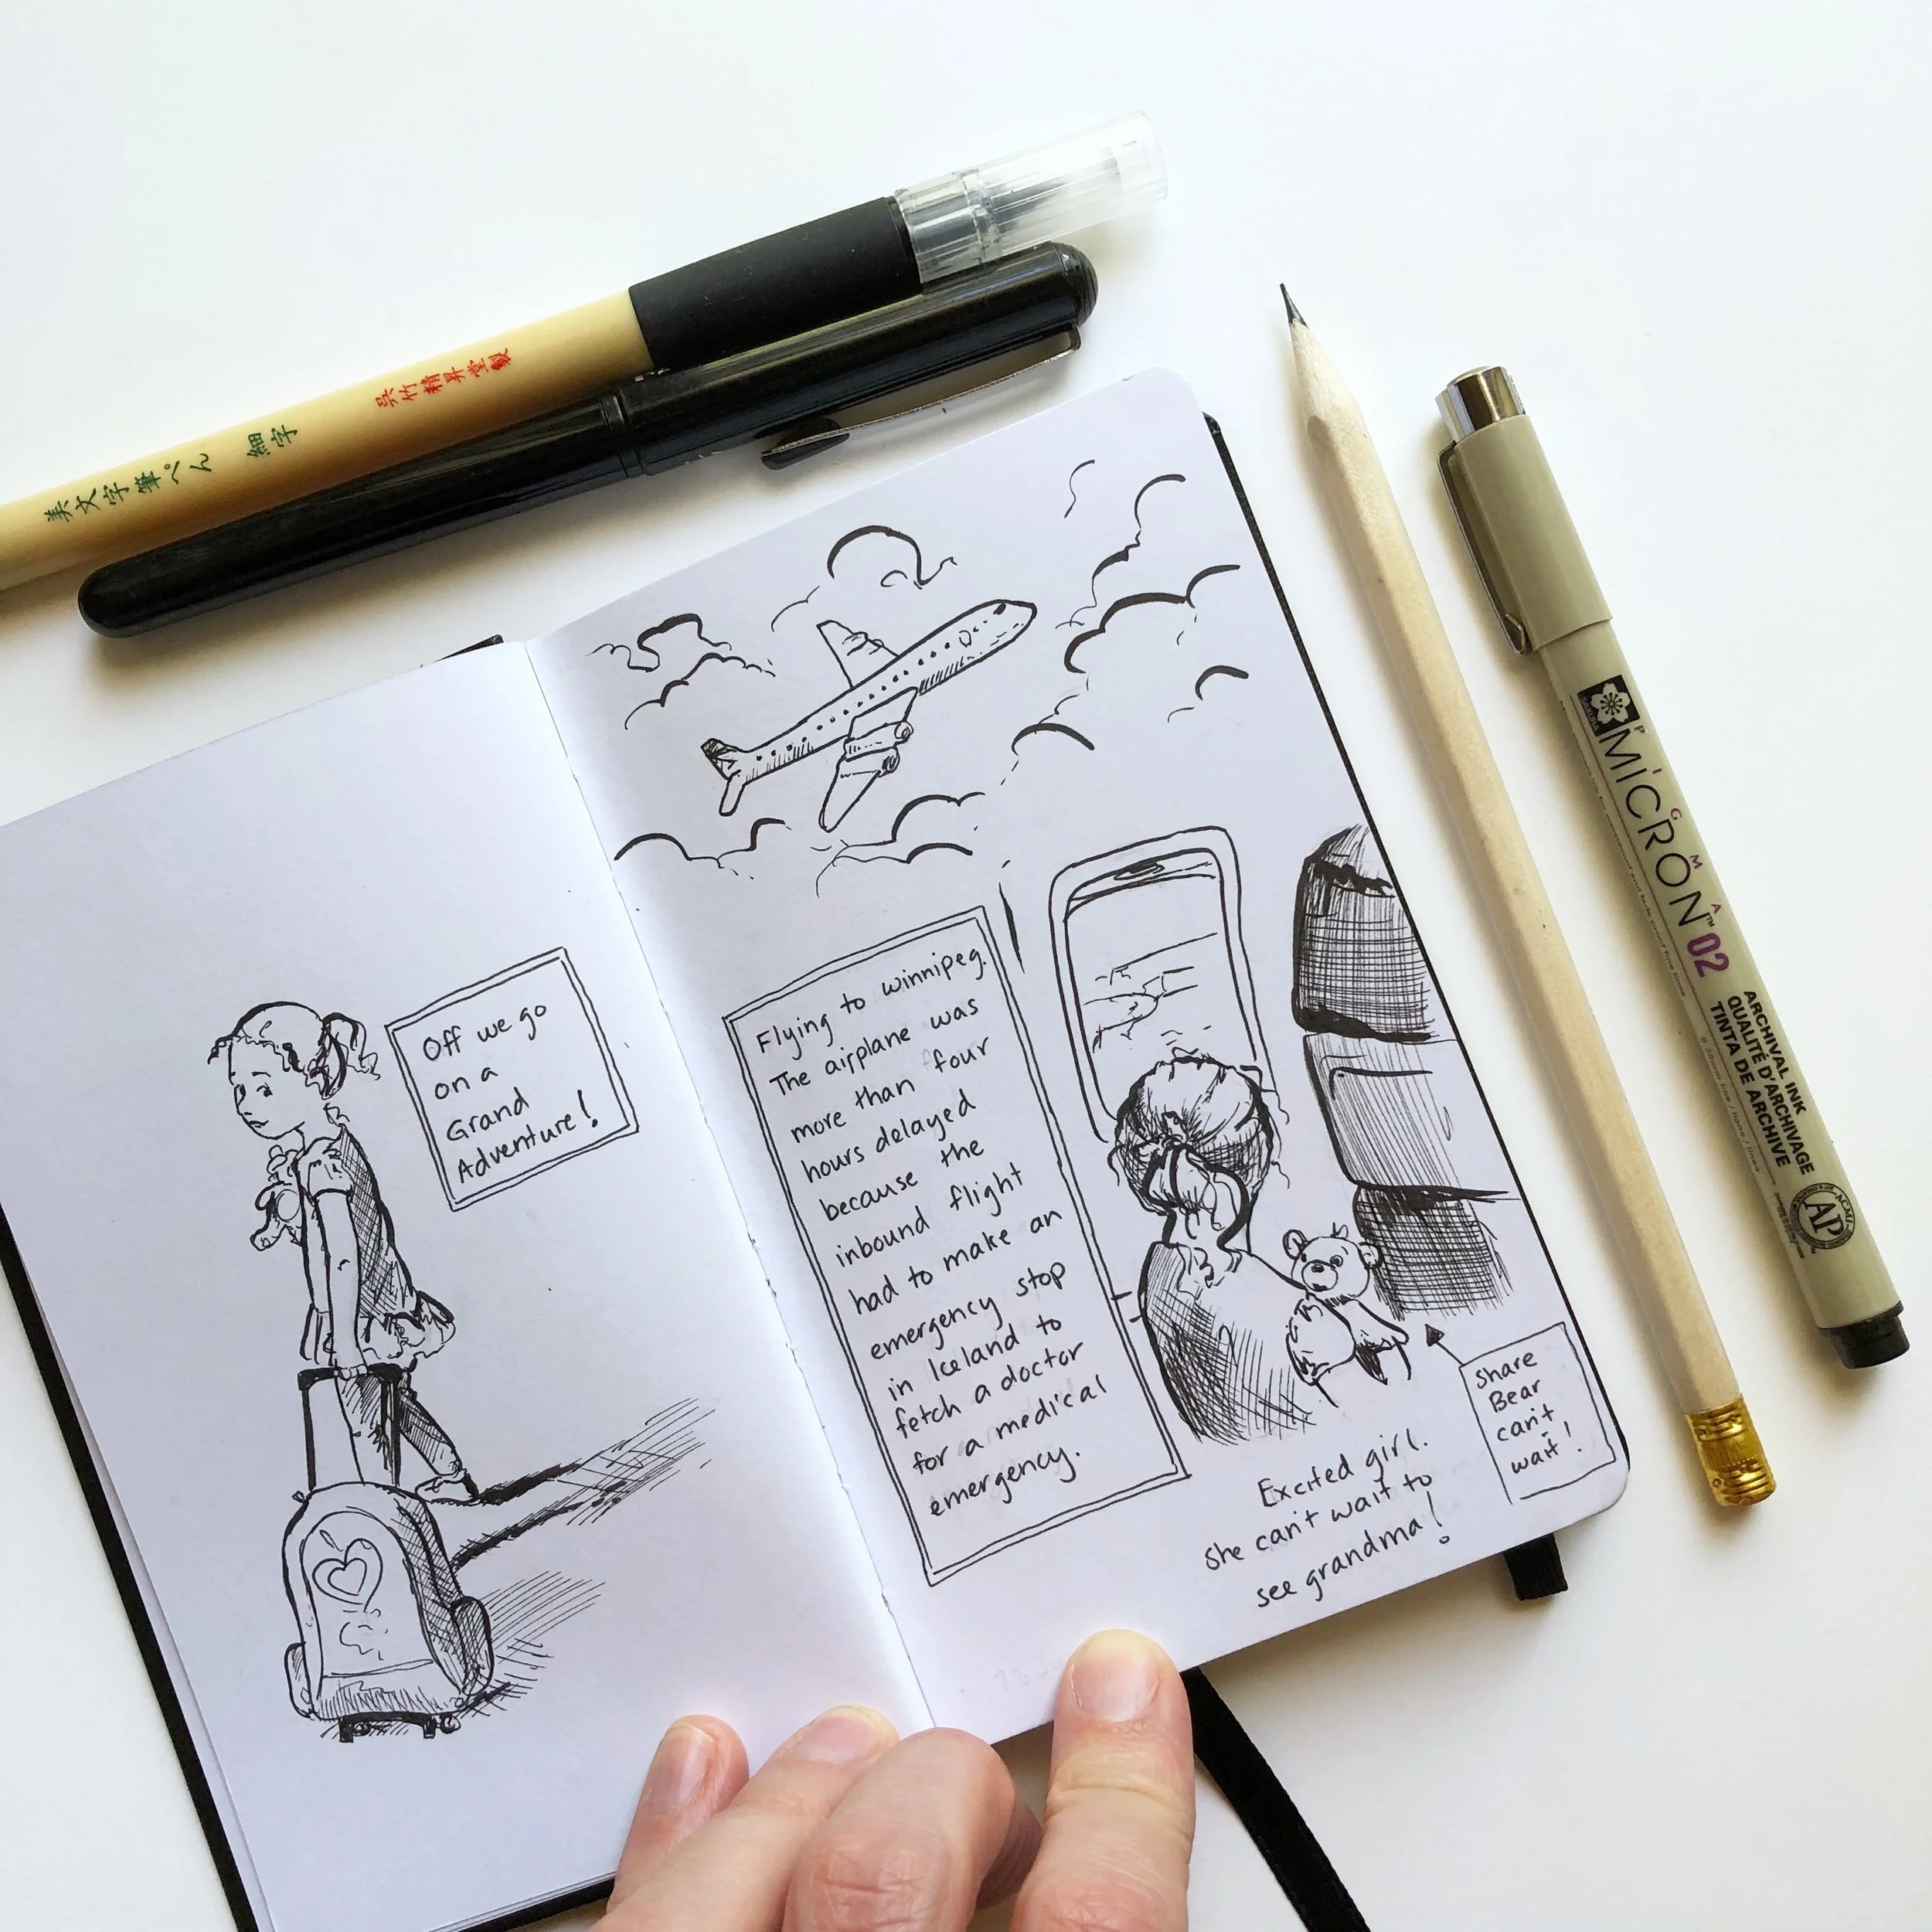 美文字筆ぺん 細字
呉竹精昇堂製
Off we go
on a
Grand
Adventure!
Flying to Winnipeg.
The airplane was
more than four
hours delayed
because the
inbound flight
had to make an
emergency stop
in Iceland to
fetch a doctor
for a medical
emergency.
Excited girl.
She can't wait to
see grandma!
Share
Bear
can't
wait!
PIGMA
MICRON™ 02
ARCHIVAL INK
QUALITÉ D'ARCHIVAGE
TINTA DE ARCHIVE
AP